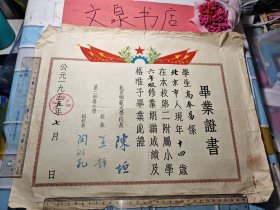 文泉书店
畢業證書
學生高
北京市人現年十四歲
在本校第二附屬小學
六年級修業期滿成績及
格准予畢業此證
北京師範大學校長 陳垣
第二附屬小學 校長 王靜
副校長
公元一九五五年七月 日